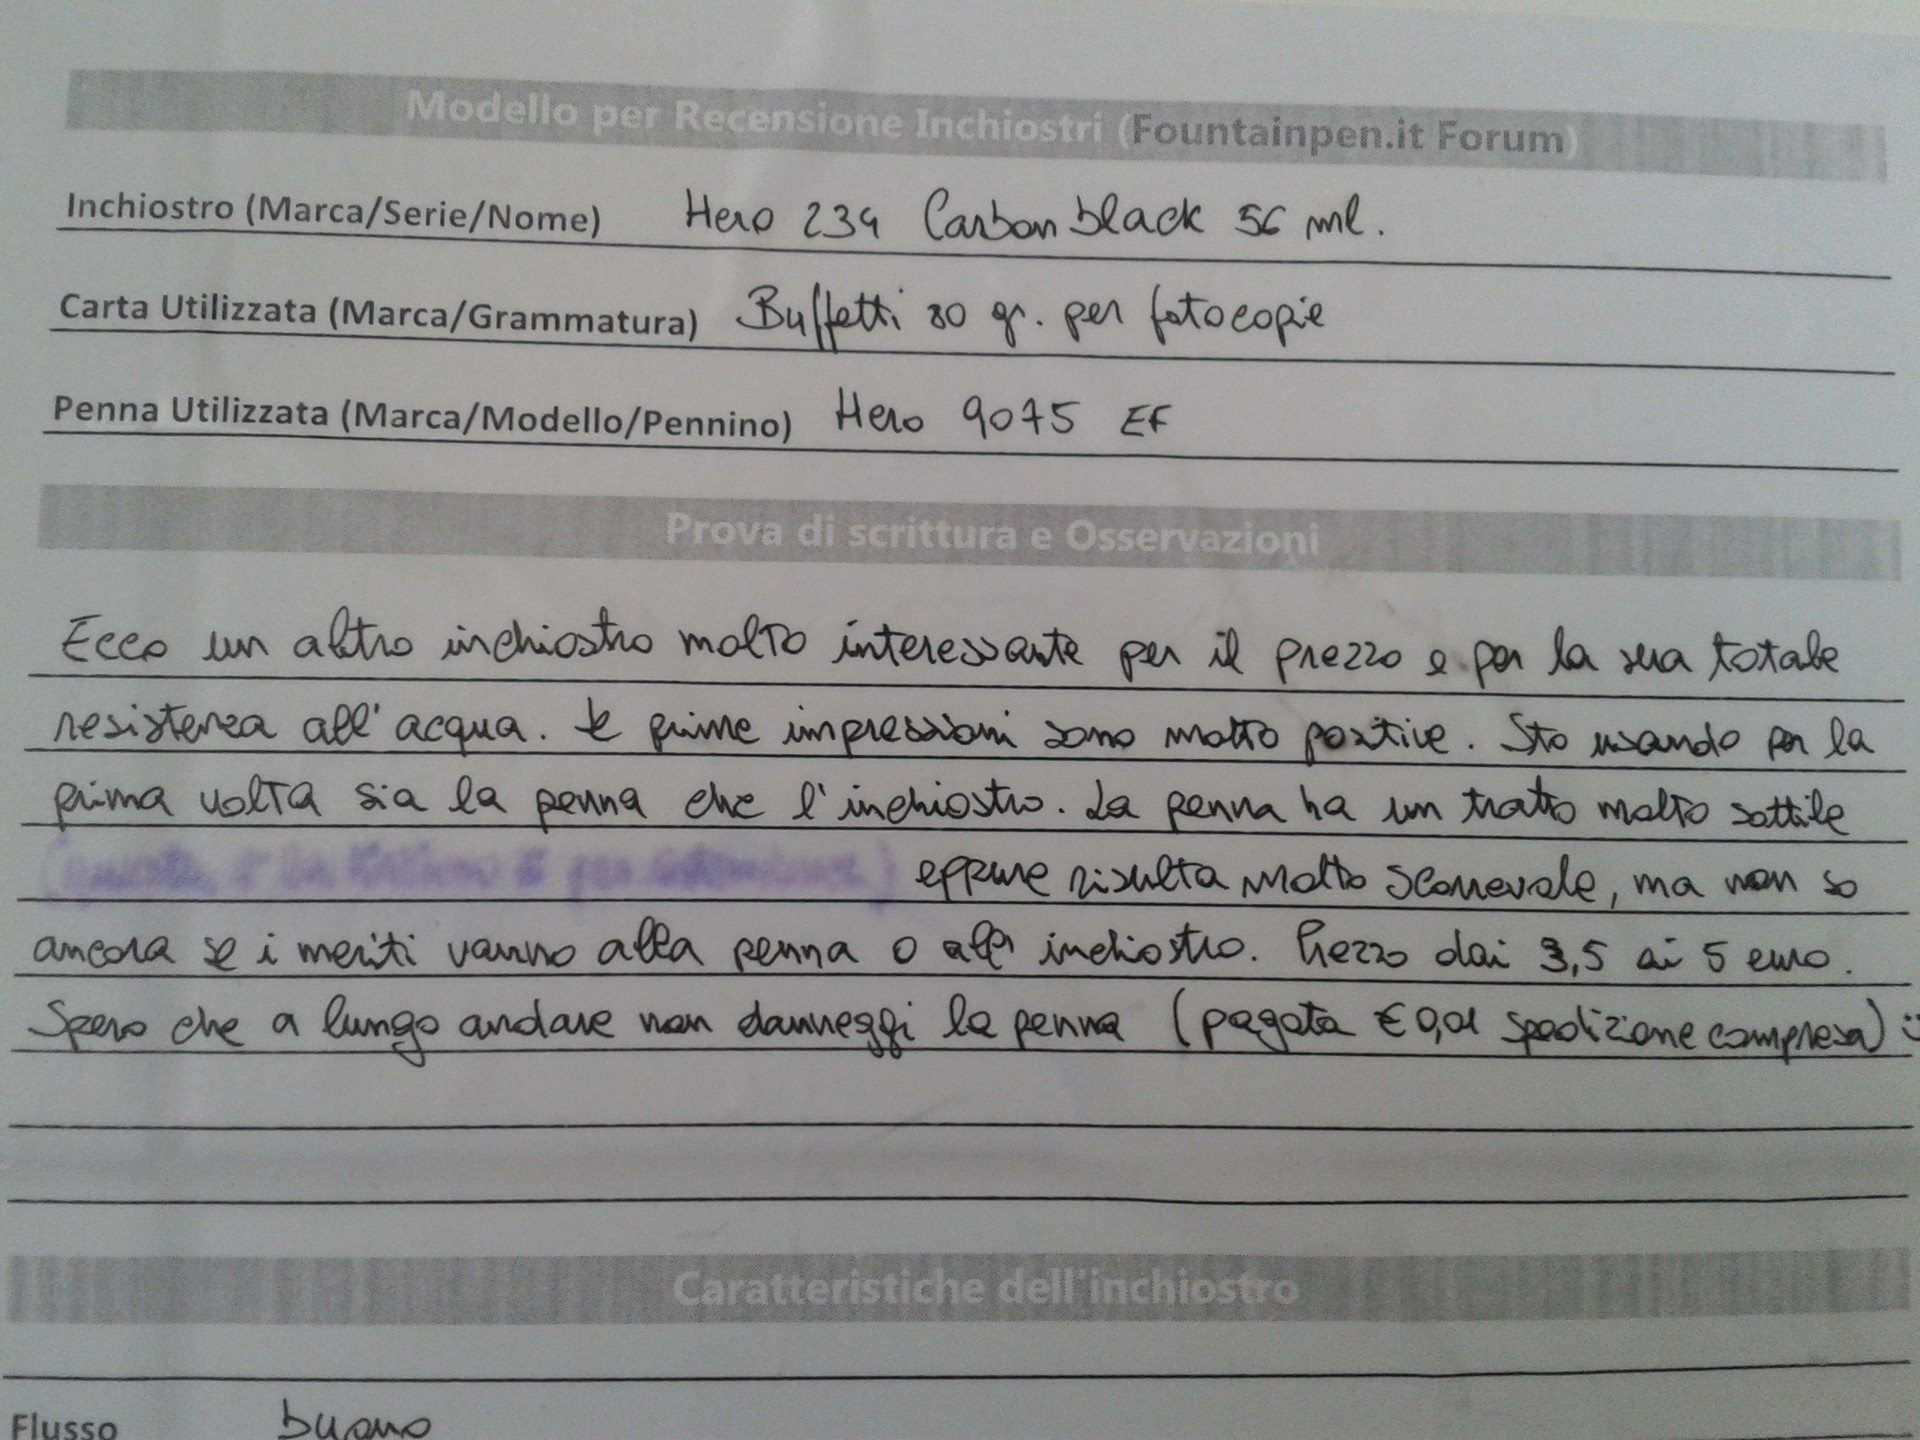 Modello per Recensione Inchiostri (Fountainpen.it Forum)
Inchiostro (Marca/Serie/Nome) Hero 234 Carbon black 56 ml.
Carta Utilizzata (Marca/Grammatura) Buffetti 80 gr. per fotocopie
Penna Utilizzata (Marca/Modello/Pennino) Hero 9075 EF
Prova di scrittura e Osservazioni
Ecco un altro inchiostro molto interessante per il prezzo e per la sua totale
resistenza all'acqua. Le prime impressioni sono molto positive. Sto usando per la
prima volta sia la penna che l'inchiostro. La penna ha un tratto molto sottile
eppure risulta molto scorrevole, ma non so
ancora se i meriti vanno alla penna o all'inchiostro. Prezzo dai 3,5 ai 5 euro.
Spero che a lungo andare non danneggi la penna (pagata € 0,01 spedizione compresa) :)
Caratteristiche dell'inchiostro
Flusso buono